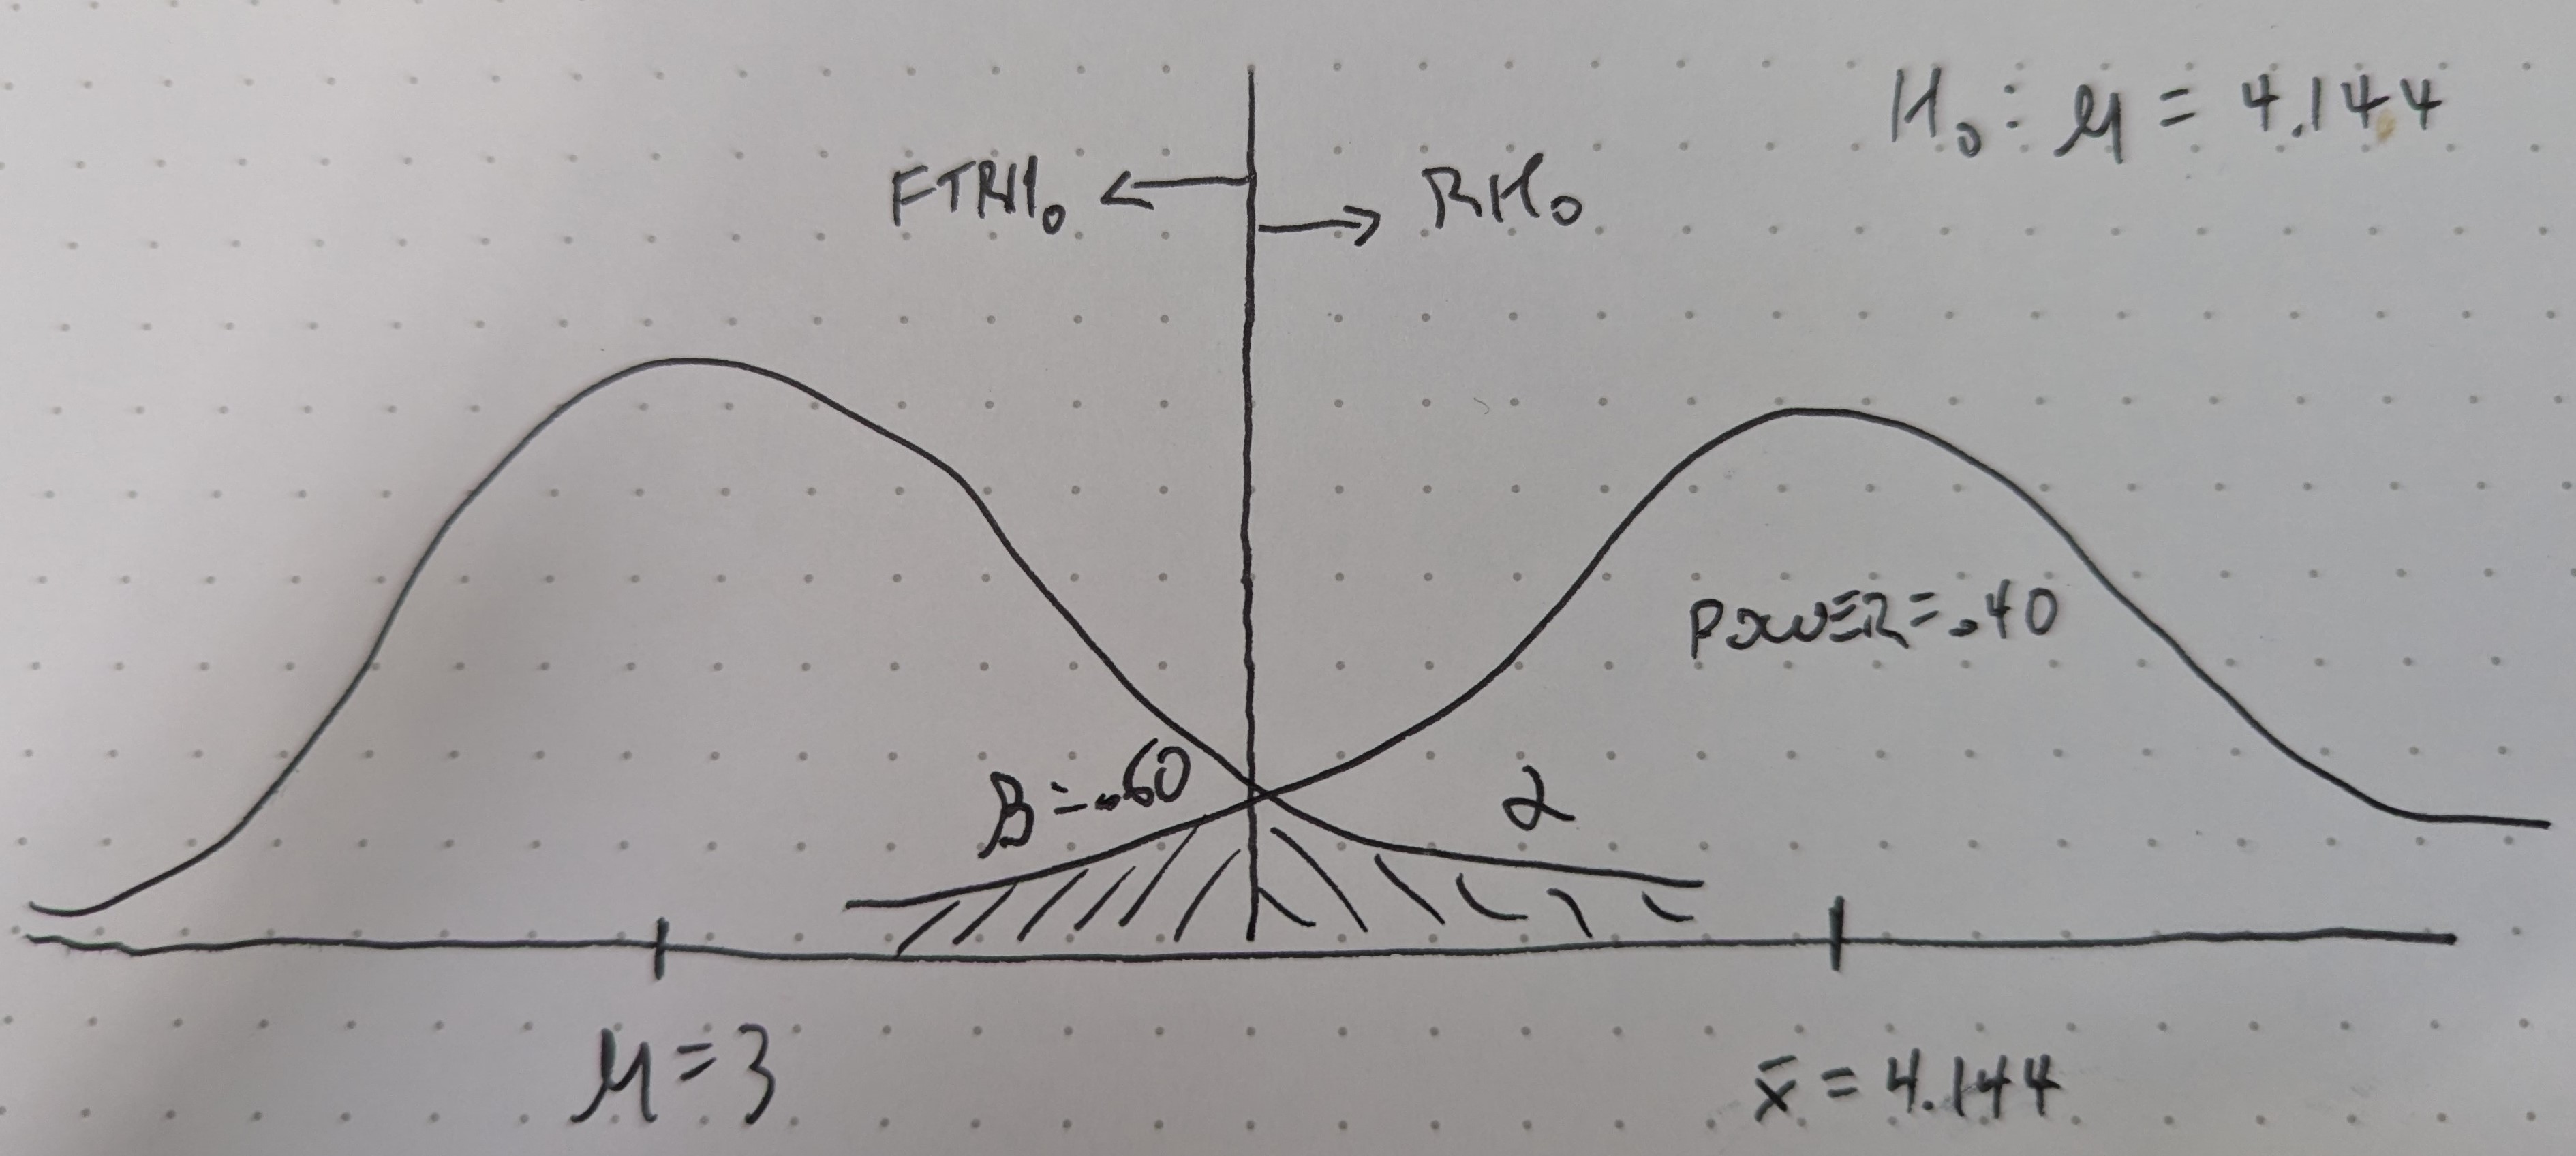 H₀: μ = 4.144
FTRH₀ ← → RH₀
POWER = .40
B = .60
α
μ = 3
x̄ = 4.144